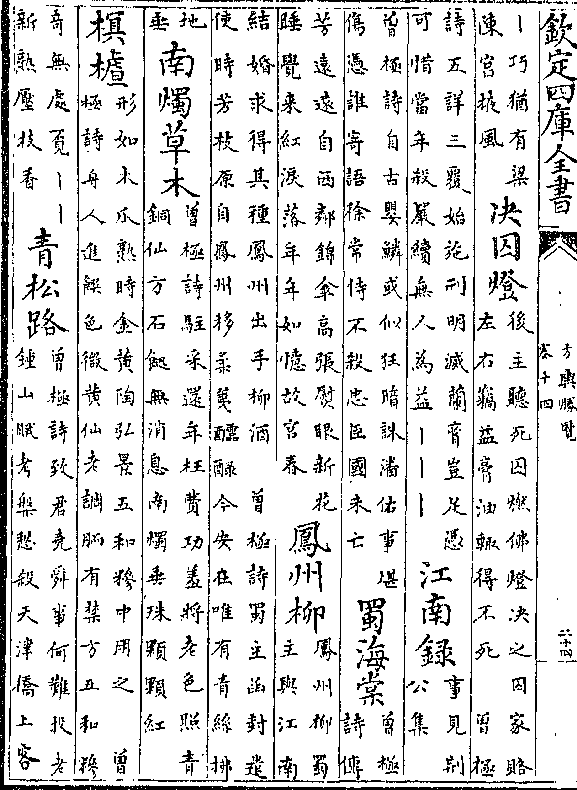 欽定四庫全書
方輿勝覽
卷十四
二十四
丨巧猶有梁
陳宮掖風
決囚燈
後主聽死囚燃佛燈決之囚家賂
左右竊益膏油輒得不死 曾極
詩五詳三覆始施刑明滅蘭膏豈足憑
可惜當年殺嚴續無人為益丨丨丨
江南録
事見荆
公集
曾極詩自古嬰鱗或似狂暗誅潘佑事堪
傷憑誰寄語徐常侍不殺忠臣國未亡
蜀海棠
曾極
詩傳
芳遠遠自西鄰錦傘高張熨眼新花
睡覺來紅淚落年年如憶故宮春
鳳州柳
鳳州柳蜀
主與江南
結婚求得其種鳳州出手柳酒 曾極詩蜀主函封遣
使時芳枝原自鳳州移柔荑醲醁今安在唯有青絲拂
地
垂
南燭草木
曾極詩駐采還年枉費功羞將老色照青
銅仙方石髓無消息南燭垂珠顆顆紅
榠樝
形如木瓜熟時金黄陶弘景五和糝中用之 曾
極詩舟人進顆色微黄仙老調胹有禁方五和糝
奇無處覓丨丨
新熟壓枝香
青松路
曾極詩致君堯舜事何難投老
鍾山賦考槃愁殺天津橋上客